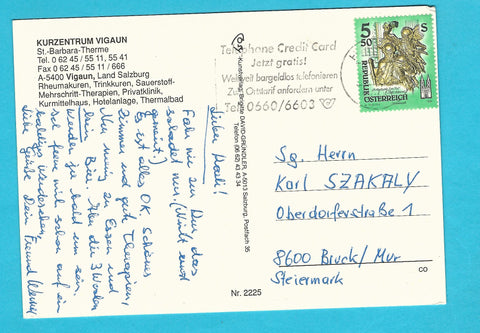 KURZENTRUM VIGAUN
St.-Barbara-Therme
Tel. 0 62 45 / 55 11, 55 41
Fax 0 62 45 / 55 11 / 666
A-5400 Vigaun, Land Salzburg
Rheumakuren, Trinkkuren, Sauerstoff-
Mehrschritt-Therapien, Privatklinik,
Kurmittelhaus, Hotelanlage, Thermalbad
Lieber Karli!
Fahr nie zur Kur, das
schadet nur. (Wirst ernst
genommt)
Es ist alles OK schönes
Zimmer und gute Therapien,
Nur wenig zu Essen und
kein Bier. Aber die 3 Wochen
werden ja bald um sein.
freu mich schon auf ein
baldiges Wiedersehen
Liebe Grüße Dein Freund
Kunstverlag, Birgitte DAVID-GRÜNDLER, A-5013 Salzburg, Postfach 35
Telefon 06 62 43 43 34
Nr. 2225
Telephone Credit Card
Jetzt gratis!
Weltweit bargeldlos telefonieren
Zum Ortstarif anfordern unter
Tel. 0660/6603
5 50 S
REPUBLIK
ÖSTERREICH
Sg. Herrn
Karl SZAKALY
Oberdorferstraße 1
8600 Bruck/Mur
Steiermark
CO